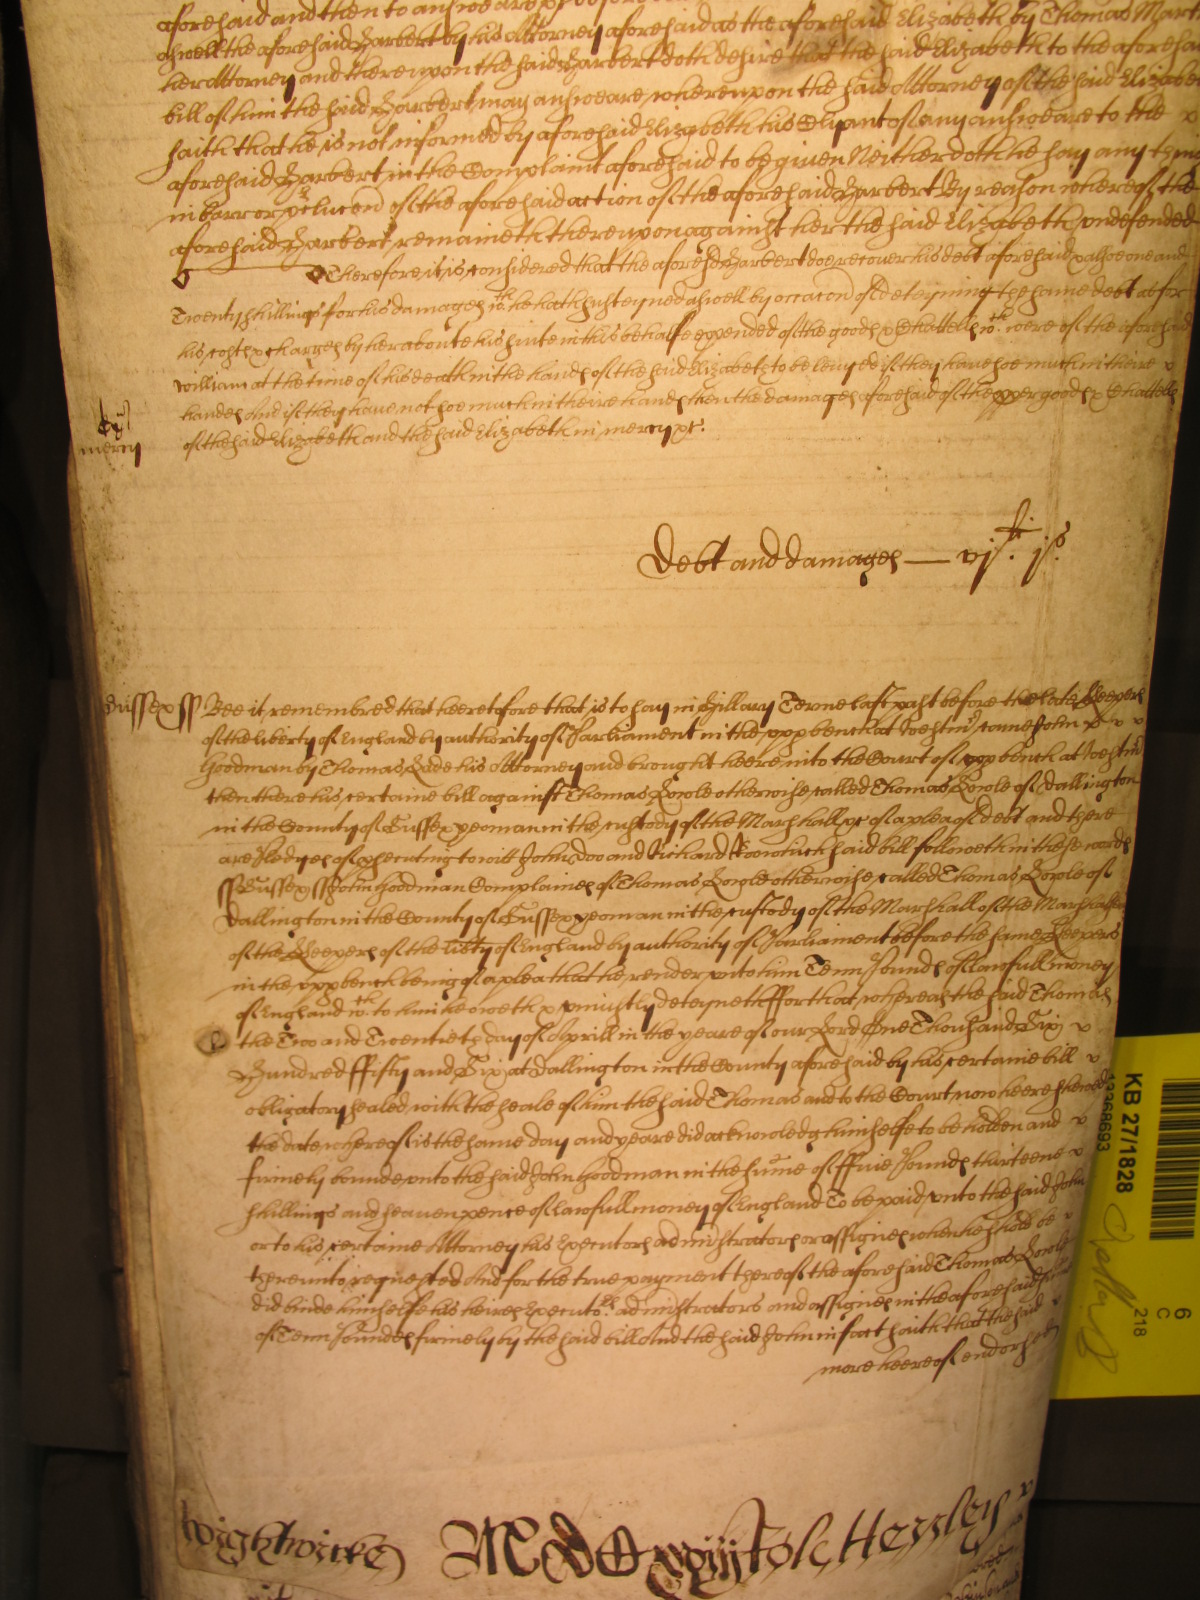 aforesaid and then to answeare &c before
aswell the aforesaid Harbert by his Attorney aforesaid as the aforesaid Elizabeth by Thomas
her Attorney and thereupon the said Harbert doth desire that the said Elizabeth to the aforesaid
bill of him the said Harbert may answeare, whereupon the said Attorney of the said Elizabeth
saith that he is not informed by aforesaid Elizabeth his Clyant of any answeare to the
aforesaid Harbert in the Complaint aforesaid to be given Neither doth he say any thing
in barr or of the aforesaid action of the aforesaid Harbert By reason whereof the
aforesaid Harbert remaineth thereupon against her the said Elizabeth undefended
Therefore it is considered that the aforesd Harbert doe recover his debt aforesaid and
Twenty shillings for his damages wch he hath susteyned aswell by occacon of deteyning the same debt as for
his costs & charges by her aboute his suite in this behalfe expended of the goods & Chattells wch were of the aforesaid
William at the time of his death in the hands of the said Elizabeth to be levyed if they have soe much in theire
handes And if they have not soe much in theire hands then the damages aforesaid of the pper goods & Chattells
mercy of the said Elizabeth and the said Elizabeth in mercy &c.
Debt and damages — vjli. js.
Sussex ss Bee it remembred that heeretofore that is to say in Hillary Terme last past before the late Keepers
of the liberty of England by authority of Parliament in the upp bench at Westmr came John
Goodman by Thomas Rede his Attorney and brought heere into the Court of upp bench at Westmr
then there his certaine bill against Thomas otherwise called Thomas of Dallington
in the County of Sussex yeoman in the custody of the Marshall &c of a plea of debt and there
are pledges of prosecuting to witt John Doo and Richard Roo which said bill followeth in these words
ss Sussex ss John Goodman Complaines of Thomas otherwise called Thomas of
Dallington in the County of Sussex yeoman in the custody of the Marshall of the Marshalsea
of the Keepers of the libty of England by authority of Parliament before the same Keepers
in the upp bench being of a plea that he render unto him Tenn Pounds of lawfull money
of England wch to him he oweth & uniustly deteyneth ffor that whereas the said Thomas
the Two and Twentieth day of Aprill in the yeare of our Lord One Thousand Six
Hundred ffifty and Six at Dallington in the County aforesaid by his certaine bill
obligatory sealed with the seale of him the said Thomas and to the Court now heere shewed
the date whereof is the same day and yeare did acknowledg himselfe to be holden and
firmely bounde unto the said John Goodman in the sume of ffive Pounds thirteene
shillings and seaven pence of lawfull money of England To be paid unto the said John
or to his certaine Attorney his Executors administrators or assignes when he should be
thereunto requested And for the true payment thereof the aforesaid Thomas
did binde himselfe his heires Executors administrators and assignes in the aforesaid
of Tenn Pounds firmely by the said bill And the said John in fact saith that the said
more heereof endorsed
Wightwicke MDC
KB 27/1828
13368693
6
C
218